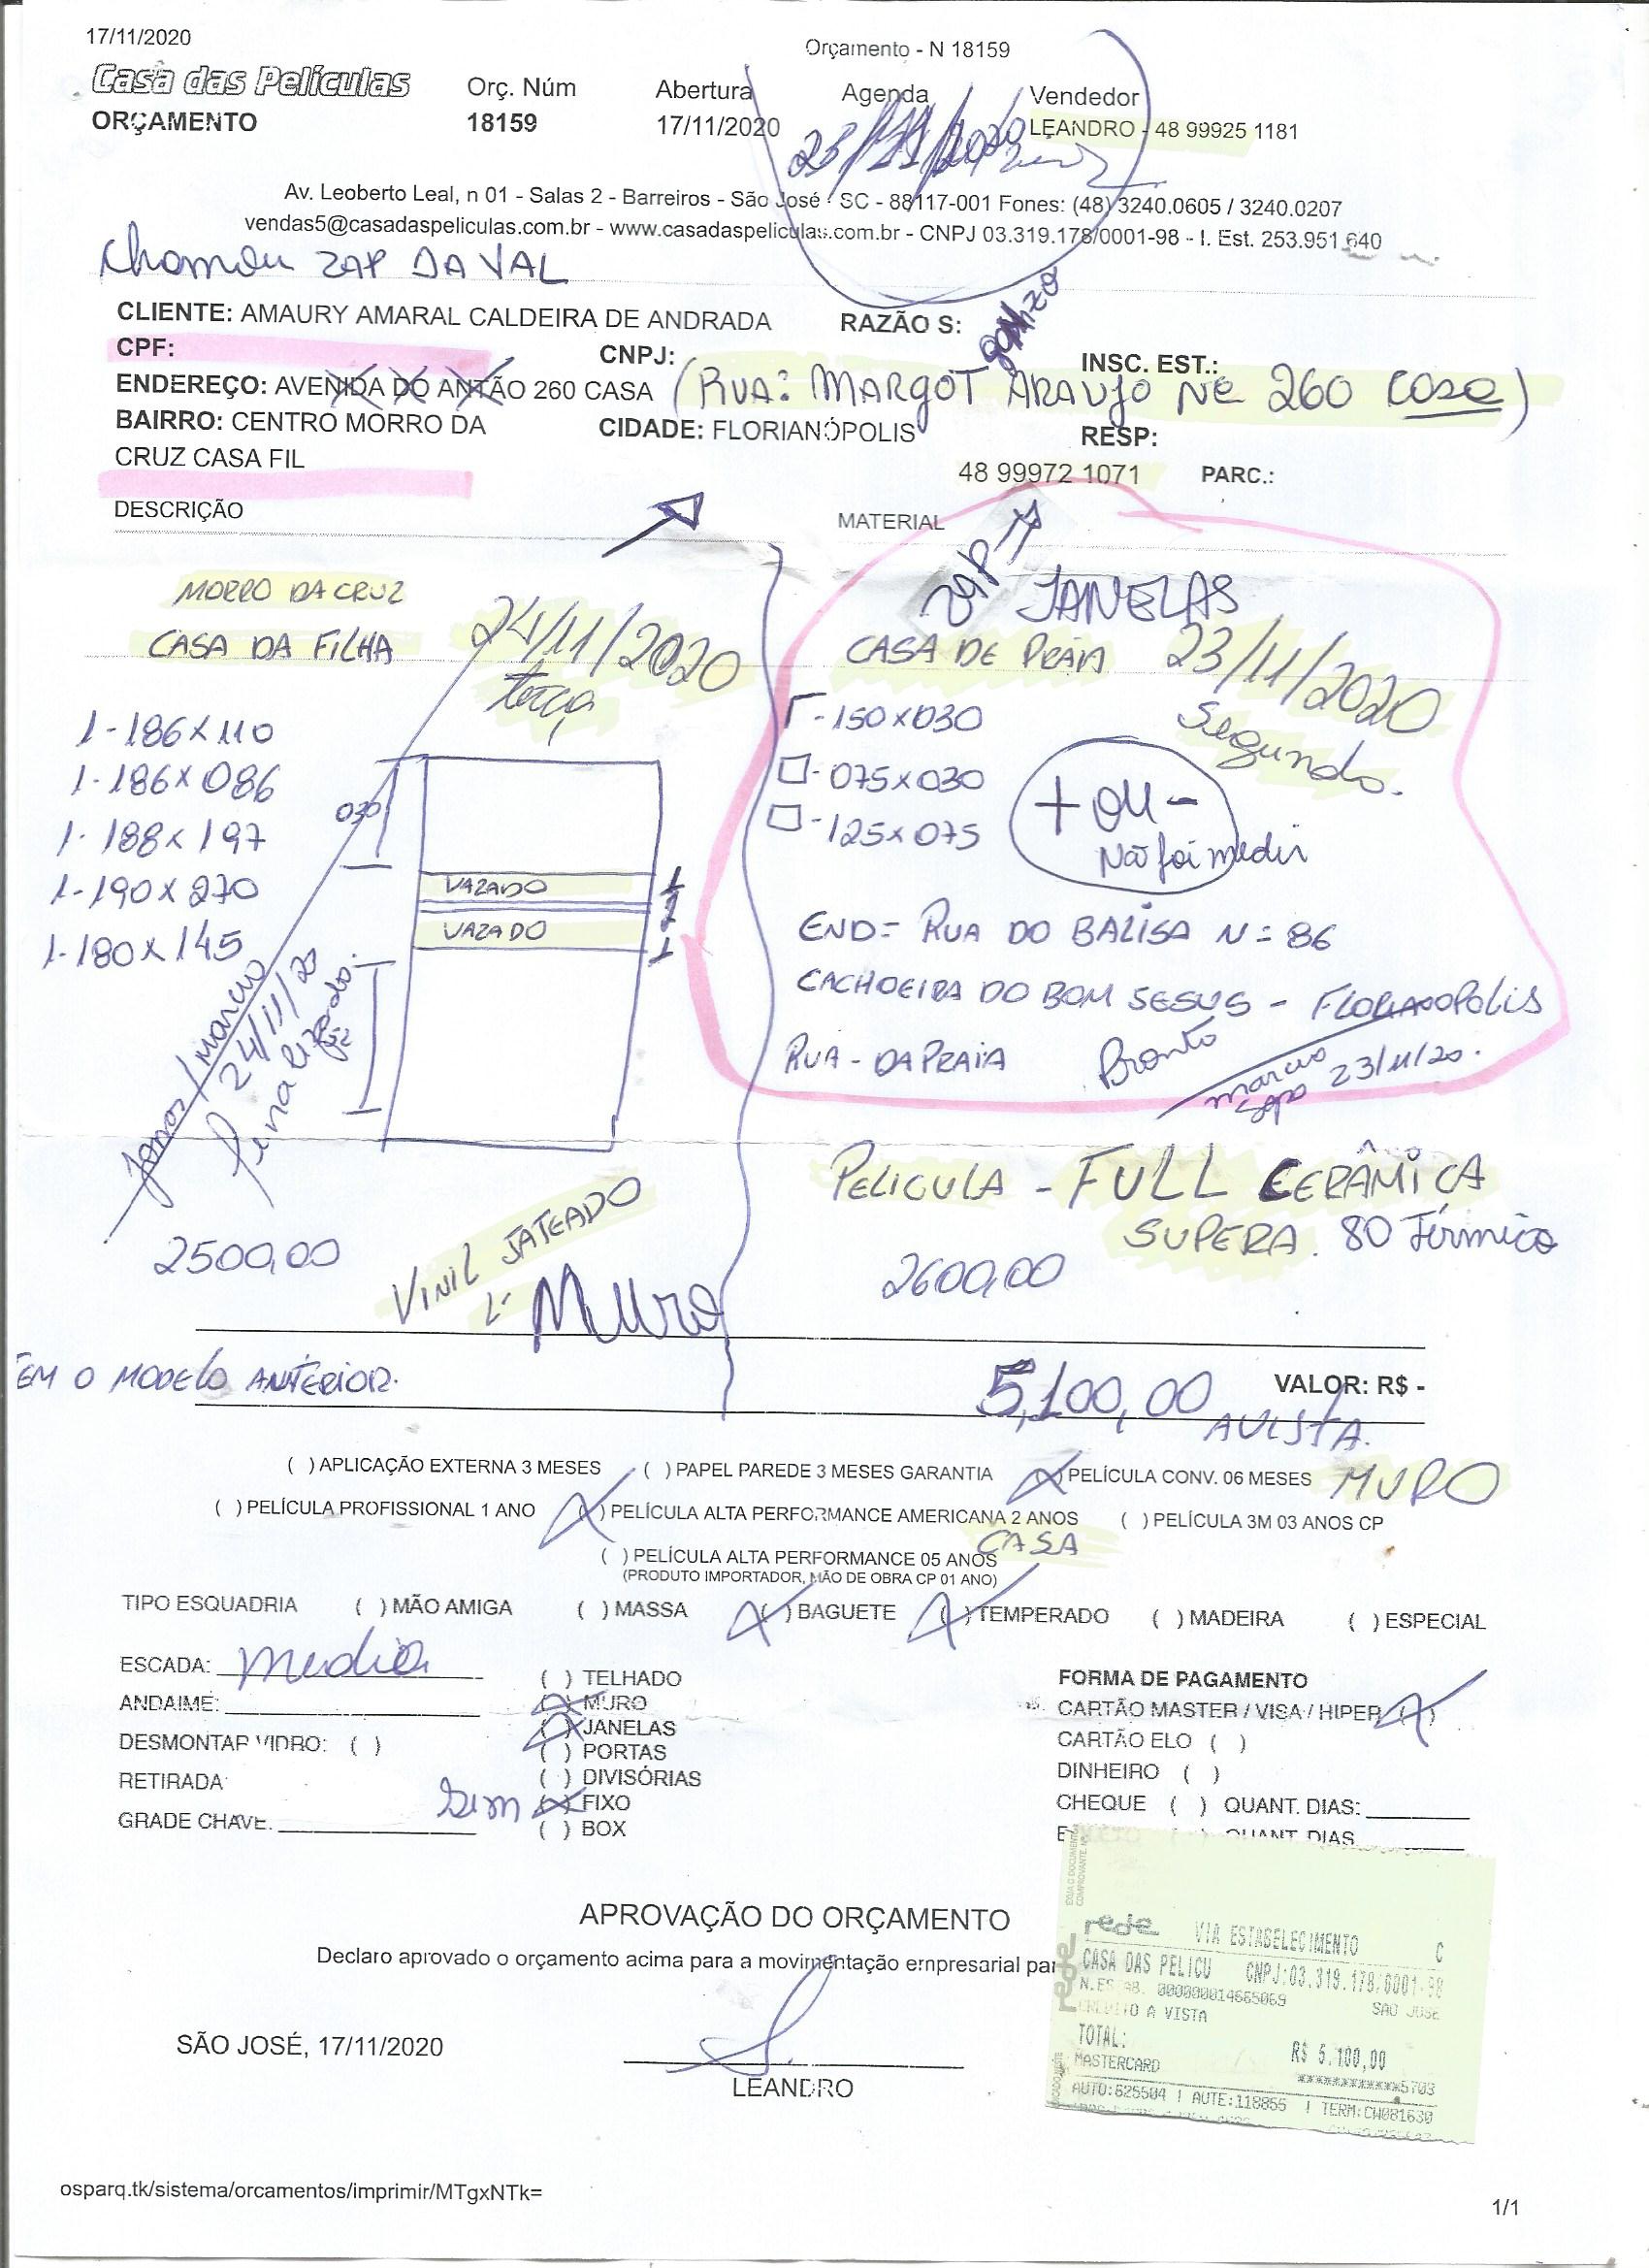 17/11/2020
Orçamento - N 18159
Casa das Películas
ORÇAMENTO
Orç. Núm
18159
Abertura
17/11/2020
Agenda
Vendedor
LEANDRO - 48 99925 1181
Av. Leoberto Leal, n 01 - Salas 2 - Barreiros - São José - SC - 88117-001 Fones: (48) 3240.0605 / 3240.0207
vendas5@casadaspeliculas.com.br - www.casadaspeliculas.com.br - CNPJ 03.319.178/0001-98 - I. Est. 253.951.640
ZAP DA VAL
CLIENTE: AMAURY AMARAL CALDEIRA DE ANDRADA
RAZÃO S:
CPF:
CNPJ:
INSC. EST.:
ENDEREÇO: AVENIDA DO ANTÃO 260 CASA
(RUA: MARGOT ARAUJO Nº 260 CASA)
BAIRRO: CENTRO MORRO DA
CRUZ CASA FIL
CIDADE: FLORIANÓPOLIS
RESP:
48 99972 1071
PARC.:
DESCRIÇÃO
MATERIAL
MORRO DA CRUZ
CASA DA FILHA
24/11/2020
terça
1-186x110
1-186x086
1-188x197
1-190x270
1-180x145
030
VAZADO
VAZADO
marcio
24/11/20
ZAP
JANELAS
CASA DE PRAIA
23/11/2020
Segunda.
-150x030
-075x030
-125x075
+ OU -
Não foi medir
END= RUA DO BALISA N= 86
CACHOEIRA DO BOM JESUS - FLORIANOPOLIS
RUA - DA PRAIA
Pronto
marcio
23/11/20.
PELICULA - FULL CERÂMICA
SUPERA. 80 Térmica
2500,00
VINIL JATEADO
Muro
2600,00
TEM O MODELO ANTERIOR.
5,100,00
VALOR: R$ -
AVISTA.
( ) APLICAÇÃO EXTERNA 3 MESES
( ) PAPEL PAREDE 3 MESES GARANTIA
(X) PELÍCULA CONV. 06 MESES
MURO
( ) PELÍCULA PROFISSIONAL 1 ANO
(X) PELÍCULA ALTA PERFORMANCE AMERICANA 2 ANOS
( ) PELÍCULA 3M 03 ANOS CP
CASA
( ) PELÍCULA ALTA PERFORMANCE 05 ANOS
(PRODUTO IMPORTADOR, MÃO DE OBRA CP 01 ANO)
TIPO ESQUADRIA ( ) MÃO AMIGA ( ) MASSA (X) BAGUETE (X) TEMPERADO ( ) MADEIRA ( ) ESPECIAL
ESCADA: media
ANDAIME:
DESMONTAR VIDRO: ( )
RETIRADA
GRADE CHAVE:
Sim
( ) TELHADO
(X) MURO
(X) JANELAS
( ) PORTAS
( ) DIVISÓRIAS
(X) FIXO
( ) BOX
FORMA DE PAGAMENTO
CARTÃO MASTER / VISA / HIPER (X)
CARTÃO ELO ( )
DINHEIRO ( )
CHEQUE ( ) QUANT. DIAS:
QUANT. DIAS
APROVAÇÃO DO ORÇAMENTO
Declaro aprovado o orçamento acima para a movimentação empresarial par
SÃO JOSÉ, 17/11/2020
LEANDRO
rede
VIA ESTABELECIMENTO C
CASA DAS PELICU CNPJ:03.319.178/0001-98
000000014665069 SAO JOSE
CREDITO A VISTA
TOTAL: R$ 5.100,00
MASTERCARD ************5703
AUTO:625504 | AUTE:118855 | TERM:CW081630
osparq.tk/sistema/orcamentos/imprimir/MTgxNTk=
1/1